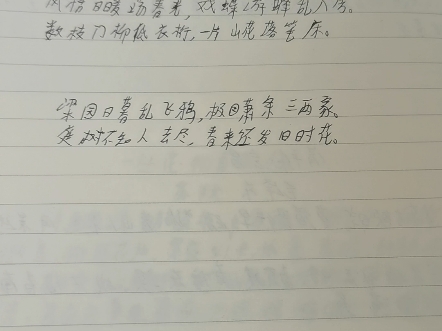 风恬日暖荡春光,戏蝶游蜂乱入房。
数枝门柳低衣桁,一片山花落笔床。
梁园日暮乱飞鸦,极目萧条三两家。
庭树不知人去尽,春来还发旧时花。